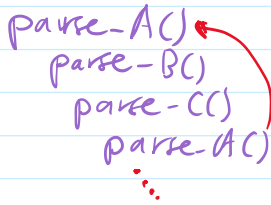 parse_A()
parse_B()
parse_C()
parse_A()